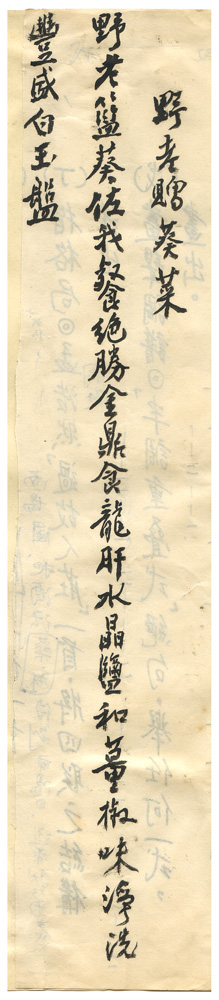 野老贈葵菜
野老籃葵佐我餐絶勝金鼎食龍肝水晶鹽和薑椒味淨洗
豐盛白玉盤